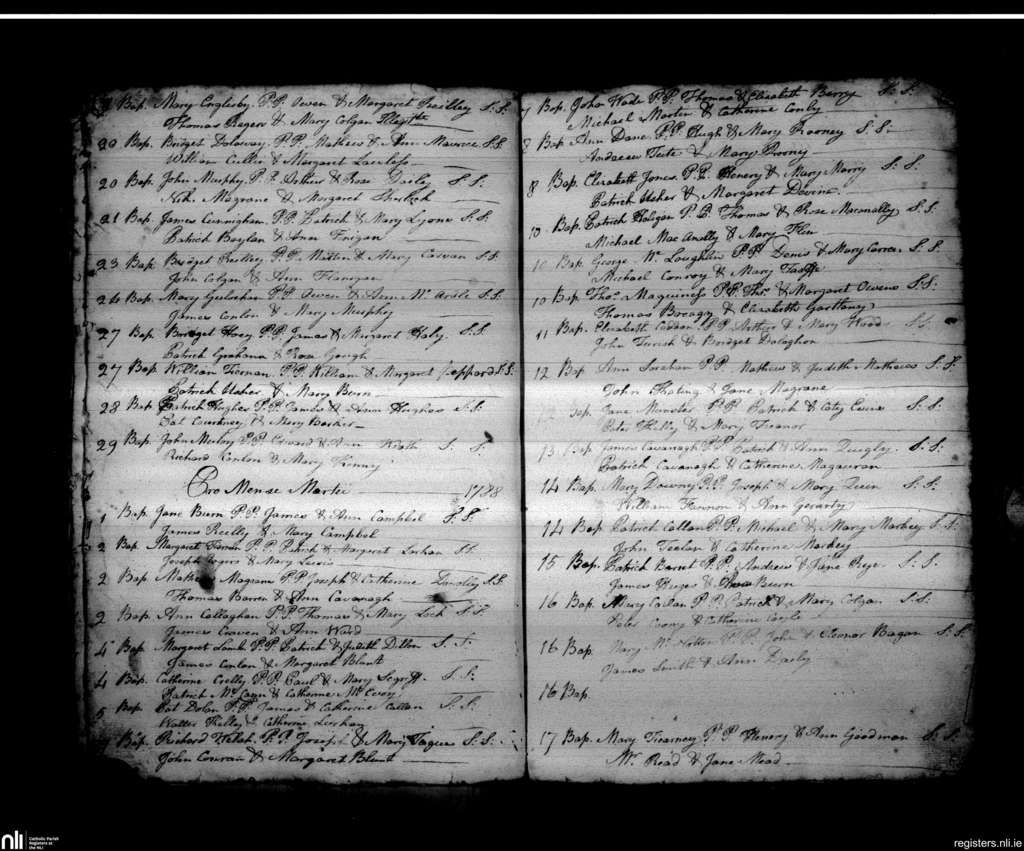 Bap. Mary Englesby P.P. Owen & Margaret Reilley S.S.
Thomas Rogers & Mary Colgan
20 Bap. Bridget Doloway P.P. Mathew & Ann Maurice S.S.
William Culler & Margaret Lawless
20 Bap. John Murphy P.P. Arthur & Rose Darley S.S.
Rich. Magrane & Margaret Sherlock
21 Bap. James Cunningham P.P. Patrick & Mary Lyons S.S.
Patrick Boylan & Ann Finigan
23 Bap. Bridget Reilley P.P. & Mary Cowan S.S.
John Colgan & Ann Flanigan
24 Bap. Mary P.P. Owen & Ann Mc Ardle S.S.
James Conlon & Mary Murphy
27 Bap. Bridget Hoey P.P. James & Margaret Kaly S.S.
Patrick Grahams & Rose Gough
27 Bap. William Tiernan P.P. William & Margaret Seppard S.S.
Patrick Usher & Mary Burn
28 Bap. Patrick Hughes P.P. James & Ann Hughes S.S.
Pat Courtney & Mary Barker
29 Bap. John P.P. Edward & Ann S.S.
Richard Conlon & Mary Kenny
Pro Mense Martii 1788
1 Bap. Jane Burn P.P. James & Ann Campbel S.S.
James Reilly & Mary Campbel
2 Bap. Margaret P.P. Patrick & Margaret S.S.
Joseph Rogers & Mary Lewis
2 Bap. Magrane P.P. Joseph & Catherine S.S.
Thomas Barren & Ann Cavanagh
2 Bap. Ann Callaghan P.P. Thomas & Mary Lock S.S.
James Craven & Ann Ward
4 Bap. Margaret Lamb P.P. Patrick & Judith Dillon S.S.
James Conlon & Margaret Blunt
4 Bap. Catherine Crelly P.P. Paul & Mary S.S.
Patrick Mc Cann & Catherine Mc Evoy
5 Bap. Pat Dolan P.P. James & Catherine Callan S.S.
Walter Kelley & Catherine
Bap. Richard Walsh P.P. Joseph & Mary S.S.
John & Margaret Blunt
7 Bap. John Wade P.P. Thomas & Elisabeth Berry S.S.
Michael Martin & Catherine Conby
8 Bap. Ann Dane P.P. Hugh & Mary Rooney S.S.
Andrew Tute & Mary Rooney
8 Bap. Elizabeth Jones P.P. Henery & Mary Morry S.S.
Patrick Usher & Margaret Devine
10 Bap. Patrick Haligan P.P. Thomas & Rose Macanally S.S.
Michael Mac Anally & Mary Flin
10 Bap. George Mc Loughlin P.P. Denis & Mary S.S.
Michael Conroy & Mary Taaffe
10 Bap. Thos. Maguiness P.P. Thos. & Margaret Owens S.S.
Thomas & Elizabeth
11 Bap. Elizabeth P.P. Arthur & Mary Woods S.S.
John & Bridget Dalaghon
12 Bap. Ann P.P. Mathew & Judith Mathews S.S.
John Keating & Jane Magrane
Bap. Jane Munster P.P. Patrick & Caty S.S.
Peter Kelly & Mary Treanor
13 Bap. James Cavanagh P.P. Patrick & Ann Quigly S.S.
Patrick Cavanagh & Catherine Magauran
14 Bap. Mary Downy P.P. Joseph & Mary Quin S.S.
William Hannon & Ann Gerarty
14 Bap. Patrick Callan P.P. Michael & Mary Markey S.S.
John Teelan & Catherine Markey
15 Bap. Patrick Barret P.P. Andrew & Jane S.S.
James & Ann Burn
16 Bap. Mary Carlan P.P. Patrick & Mary Colgan S.S.
Peter Coony & Catherine Coyle
16 Bap. Mary Mc P.P. John & Eleonor Bagan S.S.
James Smith & Ann Darly
16 Bap.
17 Bap. Mary Tiearney P.P. Henery & Ann Goodman S.S.
Mr. Read & Jane Mead
nli
Catholic Parish
Registers at
the NLI
registers.nli.ie